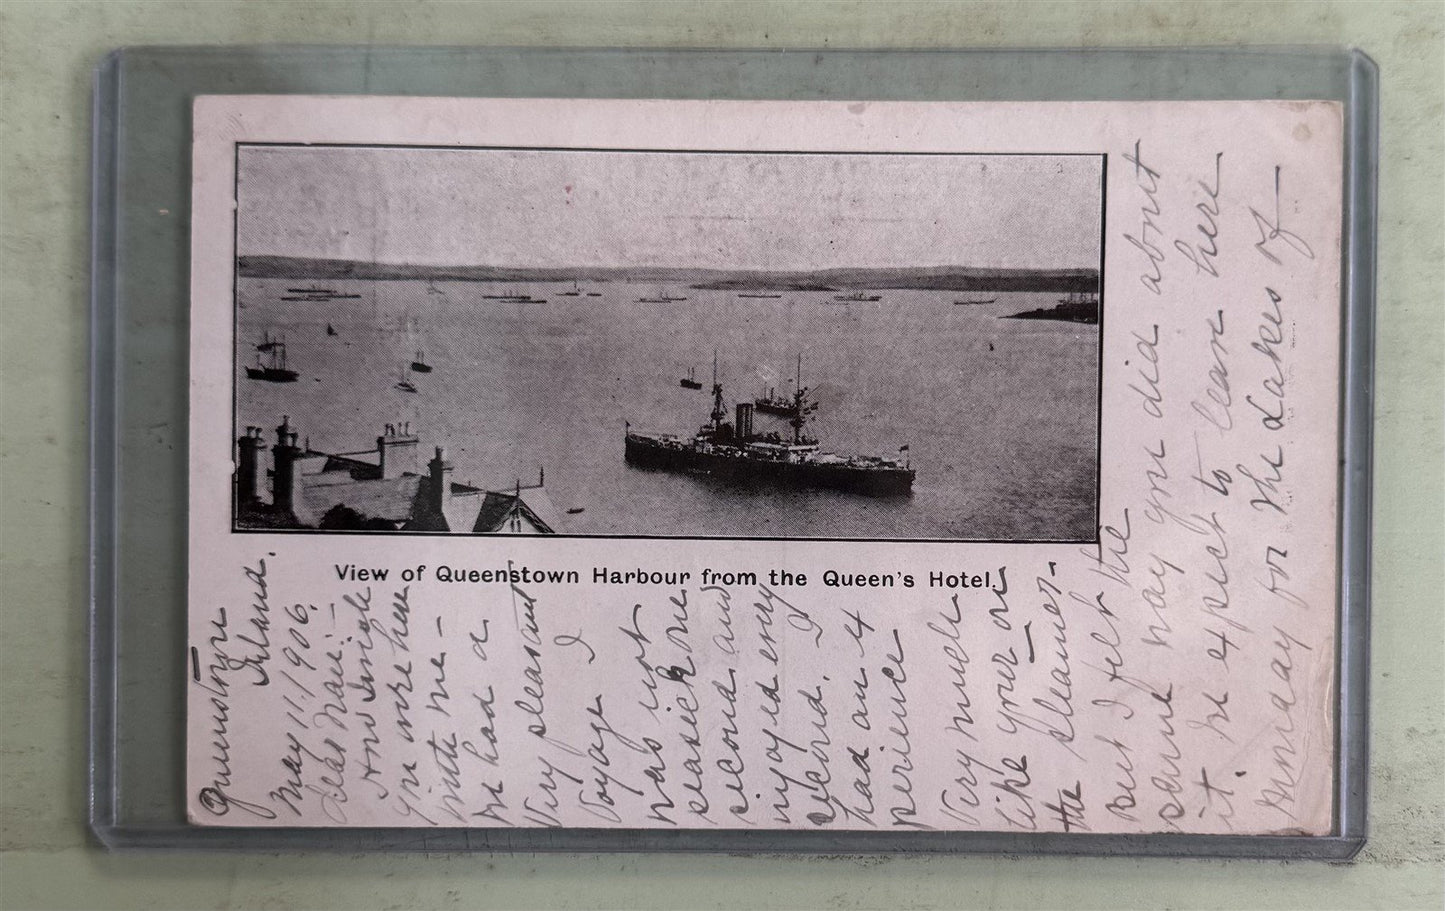 View of Queenstown Harbour from the Queen's Hotel.
Queenstown
Ireland.
May 11. 1906.
Dear Marie:—
How I wish
you were here
with me—
We had a
very pleasant
voyage I
was not
seasick one
second and
injoyed every
second. I
had an ex
perience
very much
like your on
the steamer-
But I felt the
same way you did about
it. We expect to leave here
Sunday for the Lakes of